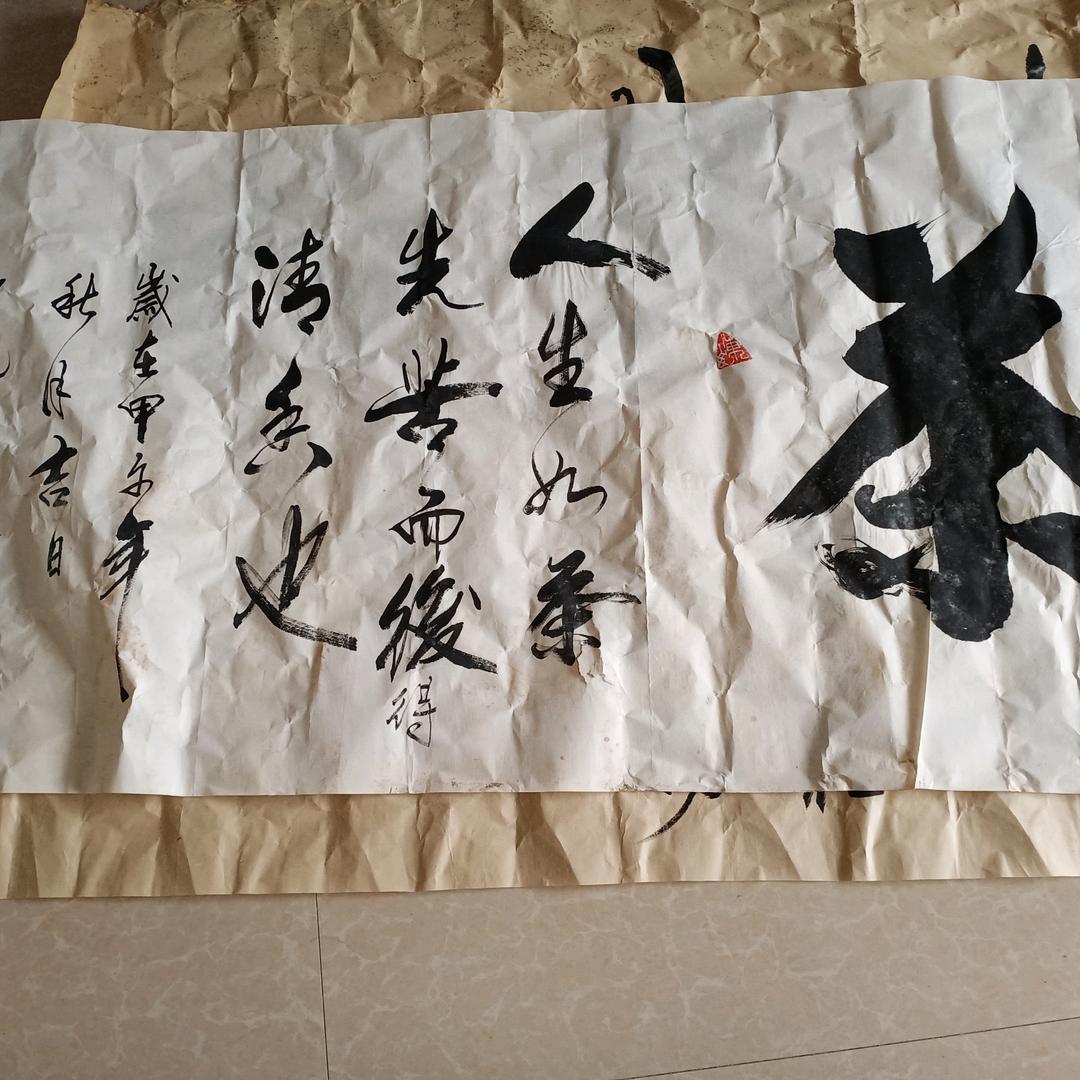 茶
人生如茶
先苦而後得
清香也
歲在甲午年
秋月吉日